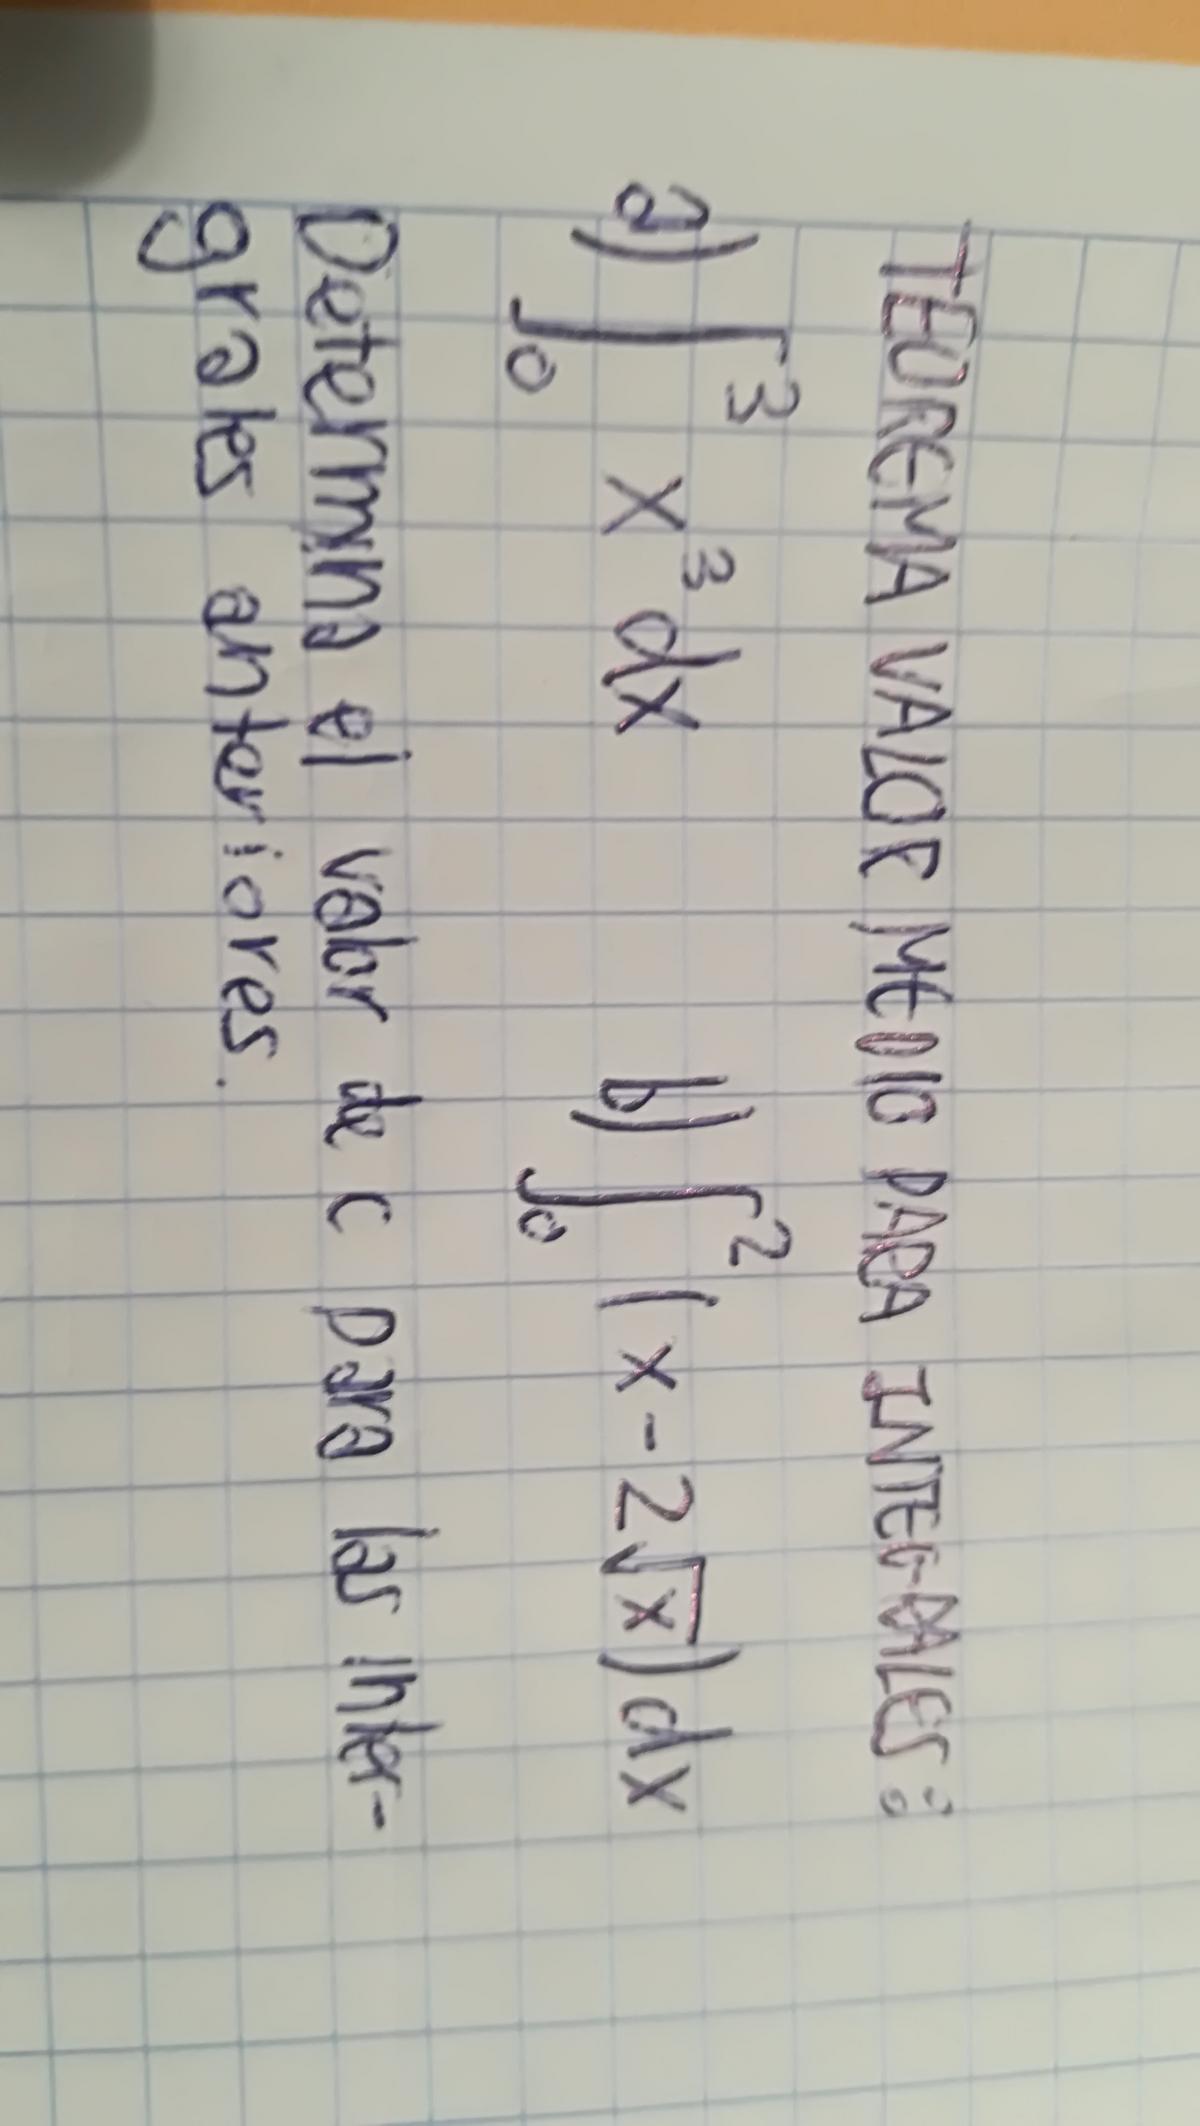 TEOREMA VALOR MEDIO PARA INTEGRALES:
a) ∫₀³ x³ dx b) ∫₀² (x - 2√x) dx
Determina el valor de c para las inter-
grales anteriores.